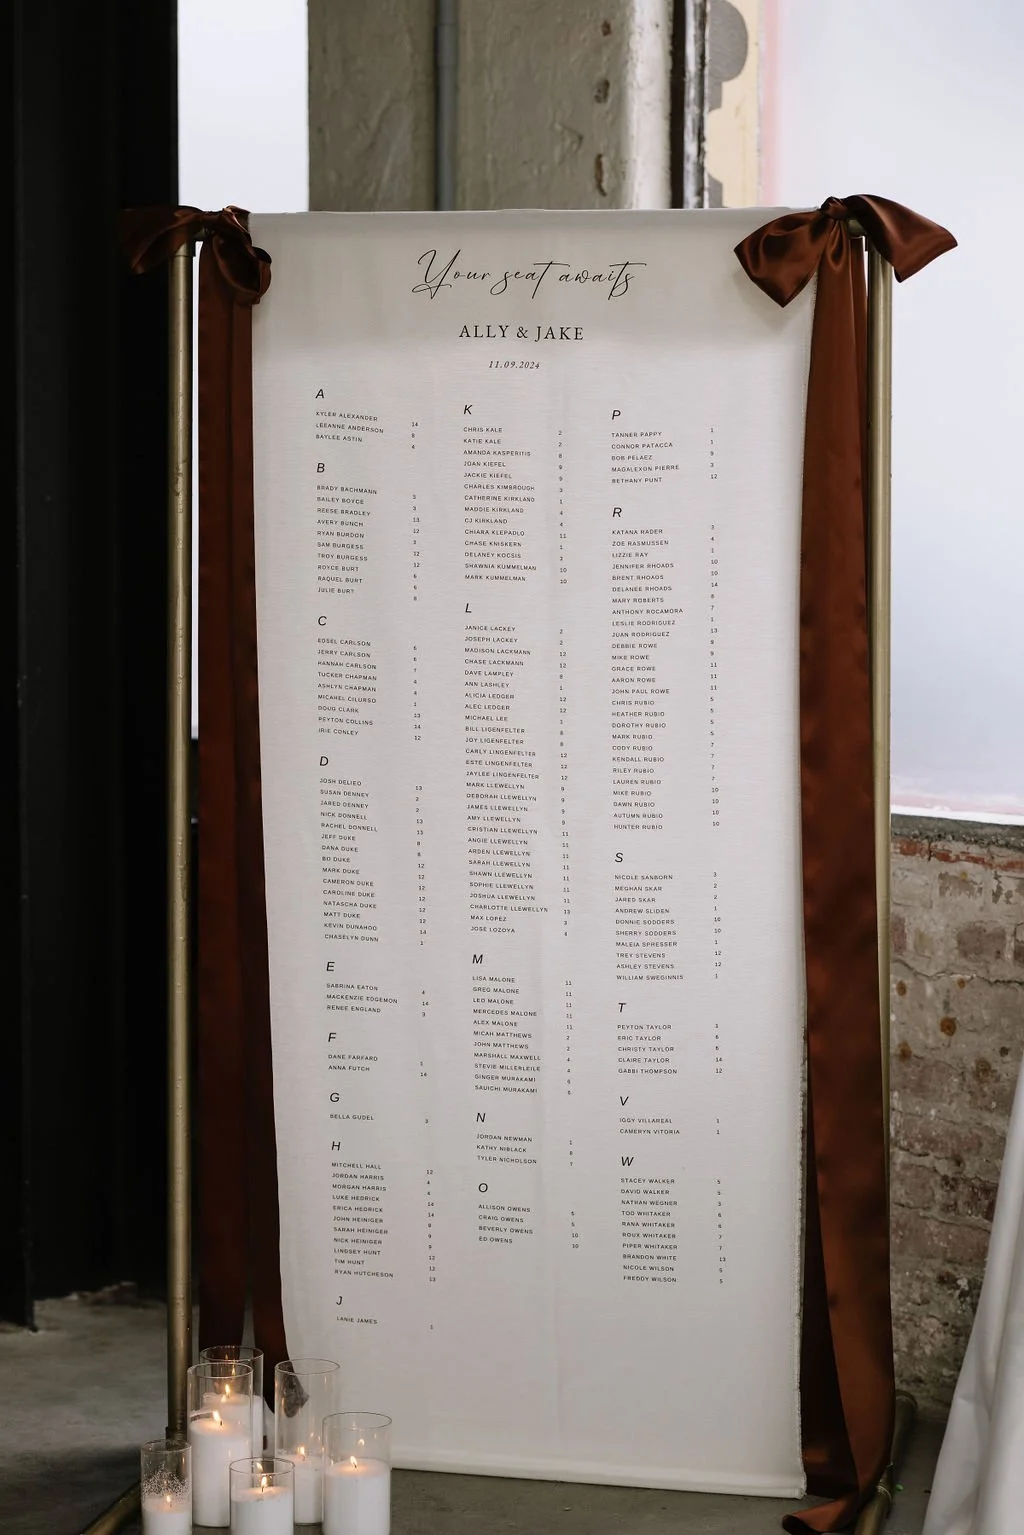 Your seat awaits
ALLY & JAKE
11.09.2024
A
KYLER ALEXANDER 14
LEEANNE ANDERSON 8
BAYLEE ASTIN 4
B
BRADY BACHMANN 3
BAILEY BOYCE 3
REESE BRADLEY 13
AVERY BUNCH 12
RYAN BURDON 3
SAM BURGESS 12
TROY BURGESS 12
ROYCE BURT 6
RAQUEL BURT 6
JULIE BURT 8
C
EDSEL CARLSON 6
JERRY CARLSON 6
HANNAH CARLSON 7
TUCKER CHAPMAN 4
ASHLYN CHAPMAN 4
MICAHEL CILURSO 1
DOUG CLARK 13
PEYTON COLLINS 14
IRIE CONLEY 12
D
JOSH DELIEO 13
SUSAN DENNEY 2
JARED DENNEY 2
NICK DONNELL 13
RACHEL DONNELL 13
JEFF DUKE 8
DANA DUKE 8
BO DUKE 12
MARK DUKE 12
CAMERON DUKE 12
CAROLINE DUKE 12
NATASCHA DUKE 12
MATT DUKE 12
KEVIN DUNAHOO 14
CHASELYN DUNN 1
E
SABRINA EATON 4
MACKENZIE EDGEMON 14
RENEE ENGLAND 3
F
DANE FARFARD 1
ANNA FUTCH 14
G
BELLA GUDEL 3
H
MITCHELL HALL 12
JORDAN HARRIS 4
MORGAN HARRIS 4
LUKE HEDRICK 14
ERICA HEDRICK 14
JOHN HEINIGER 9
SARAH HEINIGER 9
NICK HEINIGER 9
LINDSEY HUNT 13
TIM HUNT 13
RYAN HUTCHESON 13
J
LANIE JAMES 1
K
CHRIS KALE 2
KATIE KALE 2
AMANDA KASPERITIS 8
JOAN KIEFEL 9
JACKIE KIEFEL 9
CHARLES KIMBROUGH 3
CATHERINE KIRKLAND 1
MADDIE KIRKLAND 4
CJ KIRKLAND 4
CHIARA KLEPADLO 11
CHASE KNISKERN 1
DELANEY KOCSIS 3
SHAWNIA KUMMELMAN 10
MARK KUMMELMAN 10
L
JANICE LACKEY 2
JOSEPH LACKEY 2
MADISON LACKMANN 12
CHASE LACKMANN 12
DAVE LAMPLEY 8
ANN LASHLEY 1
ALICIA LEDGER 12
ALEC LEDGER 12
MICHAEL LEE 3
BILL LIGENFELTER 8
JOY LIGENFELTER 8
CARLY LINGENFELTER 12
ESTE LINGENFELTER 12
JAYLEE LINGENFELTER 12
MARK LLEWELLYN 9
DEBORAH LLEWELLYN 9
JAMES LLEWELLYN 9
AMY LLEWELLYN 9
CRISTIAN LLEWELLYN 11
ANGIE LLEWELLYN 11
ARDEN LLEWELLYN 11
SARAH LLEWELLYN 11
SHAWN LLEWELLYN 11
SOPHIE LLEWELLYN 11
JOSHUA LLEWELLYN 11
CHARLOTTE LLEWELLYN 13
MAX LOPEZ 3
JOSE LOZOYA 4
M
LISA MALONE 11
GREG MALONE 11
LEO MALONE 11
MERCEDES MALONE 11
ALEX MALONE 11
MICAH MATTHEWS 2
JOHN MATTHEWS 2
MARSHALL MAXWELL 4
STEVIE MILLERLEILE 4
GINGER MURAKAMI 5
SAUICHI MURAKAMI 5
N
JORDAN NEWMAN 1
KATHY NIBLACK 8
TYLER NICHOLSON 7
O
ALLISON OWENS 5
CRAIG OWENS 5
BEVERLY OWENS 10
ED OWENS 10
P
TANNER PAPPY 1
CONNOR PATACCA 1
BOB PELAEZ 9
MAGALEXON PIERRE 3
BETHANY PUNT 12
R
KATANA RADER 3
ZOE RASMUSSEN 4
LIZZIE RAY 1
JENNIFER RHOADS 10
BRENT RHOADS 10
DELANEE RHOADS 14
MARY ROBERTS 8
ANTHONY ROCAMORA 7
LESLIE RODRIGUEZ 1
JUAN RODRIGUEZ 13
DEBBIE ROWE 9
MIKE ROWE 9
GRACE ROWE 11
AARON ROWE 11
JOHN PAUL ROWE 11
CHRIS RUBIO 5
HEATHER RUBIO 5
DOROTHY RUBIO 5
MARK RUBIO 5
CODY RUBIO 7
KENDALL RUBIO 7
RILEY RUBIO 7
LAUREN RUBIO 7
MIKE RUBIO 10
DAWN RUBIO 10
AUTUMN RUBIO 10
HUNTER RUBIO 10
S
NICOLE SANBORN 3
MEGHAN SKAR 2
JARED SKAR 2
ANDREW SLIDEN 1
DONNIE SODDERS 10
SHERRY SODDERS 10
MALEIA SPRESSER 1
TREY STEVENS 12
ASHLEY STEVENS 12
WILLIAM SWEGINNIS 1
T
PEYTON TAYLOR 3
ERIC TAYLOR 6
CHRISTY TAYLOR 6
CLAIRE TAYLOR 14
GABBI THOMPSON 12
V
IGGY VILLAREAL 1
CAMERYN VITORIA 1
W
STACEY WALKER 5
DAVID WALKER 5
NATHAN WEGNER 3
TOD WHITAKER 6
RANA WHITAKER 6
ROUX WHITAKER 7
PIPER WHITAKER 7
BRANDON WHITE 13
NICOLE WILSON 5
FREDDY WILSON 5